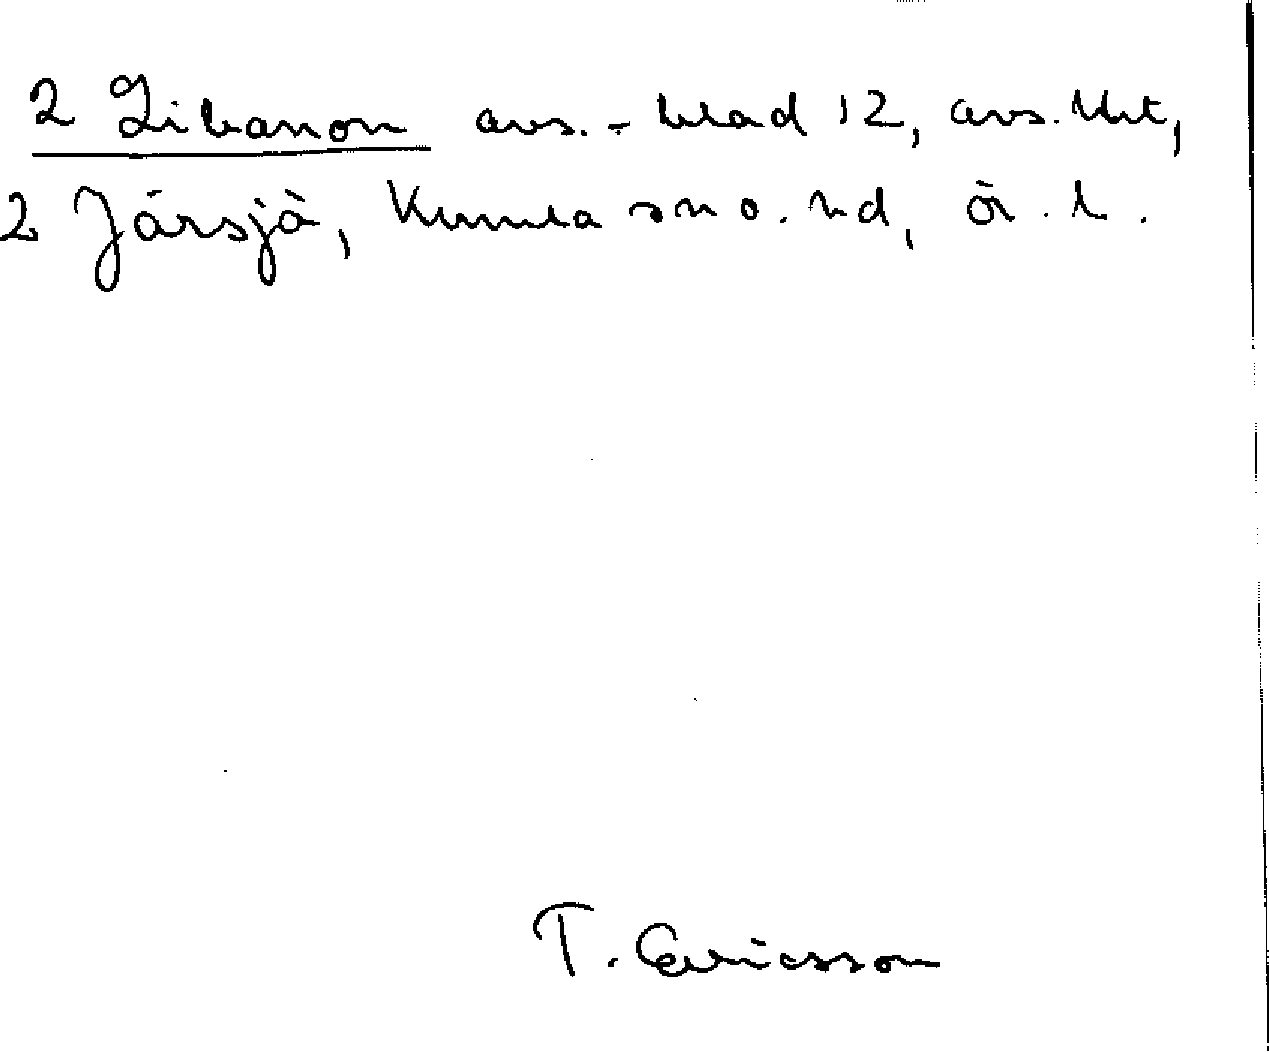 2 Libanon avs. - blad 12, avs. lht,
2 Järsjö, Kumla sn o. hd, Ör. l.
T. Ericsson